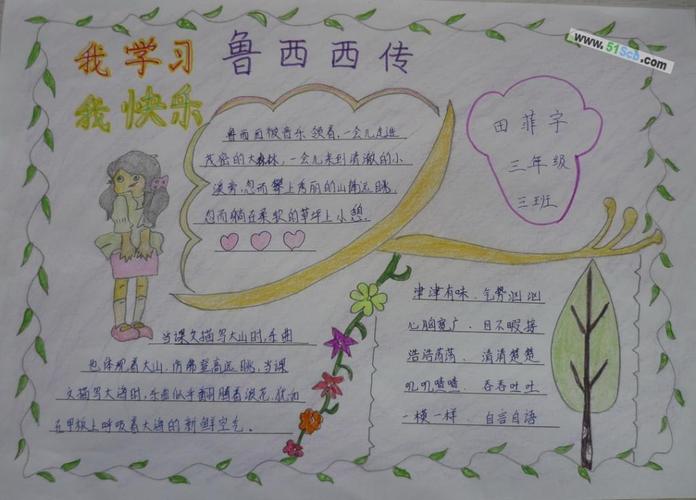 www.51Scb.com
我学习
我快乐
鲁西西传
鲁西西被音乐领着,一会儿走进
茂密的大森林,一会儿来到清澈的小
溪旁,忽而攀上秀丽的山峰远眺,
忽而躺在柔软的草坪上小憩.
田菲宇
三年级
三班
当课文描写大山时,乐曲
也体现着大山,仿佛登高远眺,当课
文描写大海时,乐曲似乎翻腾着浪花,犹如
在甲板上呼吸着大海的新鲜空气。
津津有味、气势汹汹
心胸宽广、目不暇接
浩浩荡荡、清清楚楚
叽叽喳喳、吞吞吐吐
一模一样、自言自语